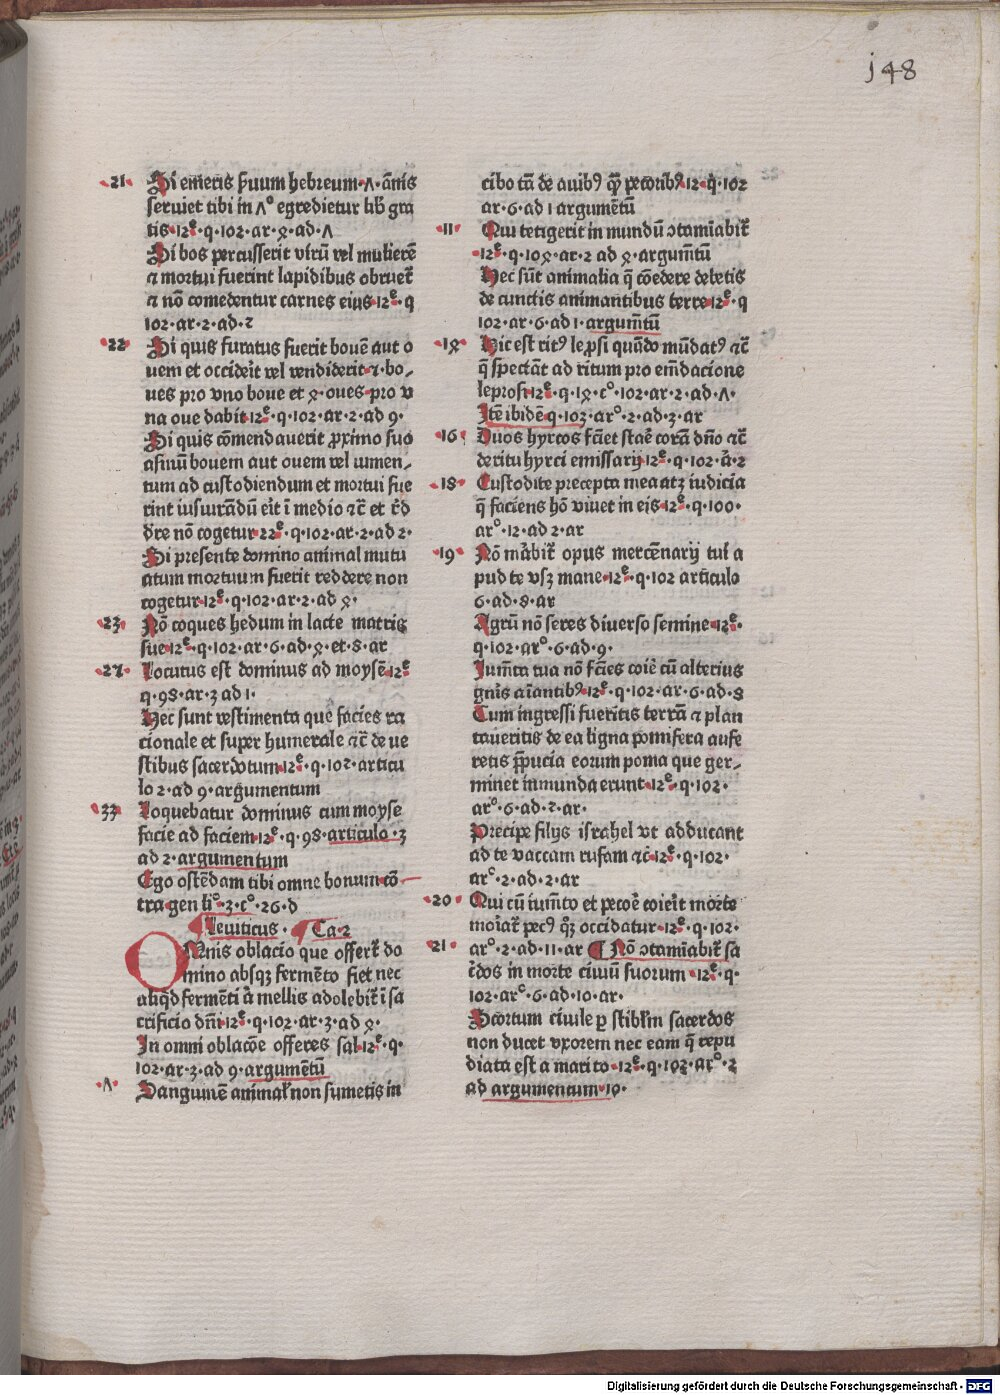 148
21 Si emeris ẜuum hebreum · Ʌ · ānis
seruiet tibi in Ʌ° egredietur lib̄ gra
tis · 12ᵉ · q · 102 · ar · ꝝ · ad · Ʌ
Si bos percusserit virū vel mulierē
⁊ mortui fuerint lapidibus obruet᷑
⁊ nō comedentur carnes eius · 12ᵉ · q
102 · ar · 2 · ad · 2
22 Si quis furatus fuerit bouē aut o
uem et occiderit vel vendiderit · ⁊ · bo-
ues pro vno boue et ꝝ · oues · pro v
na oue dabit · 12ᵉ · q · 102 · ar · 2 · ad 9 ·
Si quis cōmendauerit ꝓximo suo
asinū bouem aut ouem vel iumen-
tum ad custodiendum et mortui fue
rint iusurādū eit̄ ī medio ⁊c̄ et r̄d
d̄re nō cogetur · 22ᵉ · q · 102 · ar · 2 · ad 2 ·
Si presente domino animal mutu
atum mortuum fuerit reddere non
cogetur · 12ᵉ · q · 102 · ar · 2 · ad ꝝ ·
23 Nō coques hedum in lacte matris
sue · 12ᵉ · q · 102 · ar · 6 · ad · ꝝ · et · 8 · ar
27 Locutus est dominus ad moysē · 12ᵉ
q · 98 · ar · 3 ad 1 ·
Hec sunt vestimenta que facies ra
cionale et super humerale ⁊c̄ de ue
stibus sacerdotum · 12ᵉ · q · 102 · articu
lo 2 · ad 9 · argumentum
33 Loquebatur dominus cum moyse
facie ad faciem · 12ᵉ · q · 98 · articulo · 3
ad 2 · argumentum
Ego ostēdam tibi omne bonum cō
tra gen li° · 3 · c° · 26 · d
Leuiticus · Ca · 2
OMnis oblacio que offert᷑ do
mino absqꝫ fermēto fiet nec
aliqd fermēti ā mellis adolebit᷑ ī sa
crificio dn̄i · 12ᵉ · q · 102 · ar · 3 · ad ꝝ ·
In omni oblacōe offeres sal · 12ᵉ · q ·
102 · ar · 3 · ad 9 · argumētū
Ʌ Sanguinē animal᷑ non sumetis in
cibo tā de auibꝰ qꝫ pecoribꝰ · 12 · q · 102
ar · 6 · ad 1 argumētū
11 Qui tetigerit in mundū ɔtamīabit᷑
12ᵉ · q · 10ꝝ · ar · 2 ad ꝝ · argum̄tū
Hec sūt animalia q̄ cōedere debetis
de cunctis animantibus terre · 12ᵉ · q
102 · ar · 6 · ad 1 · argum̄tū
1ꝝ Hic est ritꝰ lep̄si quādo mūdatꝰ ⁊c̄
q̄ spectāt ad ritum pro emd̄acione
leprosi · 12ᵉ · q · 1ꝝ · c° · 102 · ar · 2 · ad · Ʌ ·
Itē ibidē q · 103 · ar° · 2 · ad · 3 · ar
16 Duos hyrcos fc̄iet staē corā dn̄o ⁊c̄
de ritu hyrci emissarij · 12ᵉ · q · 102 · ā · 2
18 Custodite precepta mea atqꝫ iudicia
q̄ faciens hō viuet in eis · 12ᵉ · q · 100 ·
ar° · 12 · ad 2 · ar
19 Nō māˀbit᷑ opus mercēnarij tui a
pud te vsqꝫ mane · 12ᵉ · q · 102 articulo
6 · ad · 8 · ar
Agrū nō seres diuerso semine · 12ᵉ ·
q · 102 · ar° · 6 · ad · 9 ·
Ium̄ta tua nō fc̄ies coiē cū alterius
gn̄is aīantibꝰ · 12ᵉ · q · 102 · ar · 6 · ad · 8
Cum ingressi fueritis terrā ⁊ plan
taueritis de ea ligna pomifera aufe
retis p̄pucia eorum poma que ger-
minet inmunda erunt · 12ᵉ · q · 102 ·
ar° · 6 · ad · 2 · ar ·
Precipe filijs israhel vt adducant
ad te vaccam rufam ⁊c̄ · 12ᵉ · q · 102 ·
ar° · 2 · ad · 2 · ar
20 Qui cū ium̄to et pecoē coierit morte
moiat᷑ pecꝰ qꝫ occidatur · 12ᵉ · q · 102 ·
21 ar° · 2 · ad · 11 · ar ¶ Nō ɔtamīabit᷑ sa
c̄dos in morte ciuiū suorum · 12ᵉ · q ·
102 · ar° · 6 · ad · 10 · ar ·
Scortum ciuile ꝑ stiblm̄ sacerdos
non ducet vxorem nec eam q̄ repu
diata est a marito · 12ᵉ · q · 102 · ar° · 2
ad argumentum · 10 ·
Digitalisierung gefördert durch die Deutsche Forschungsgemeinschaft - DFG